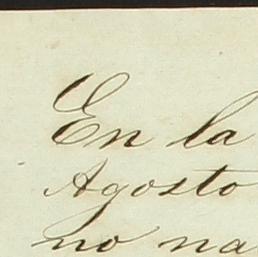 En la
Agosto
no na